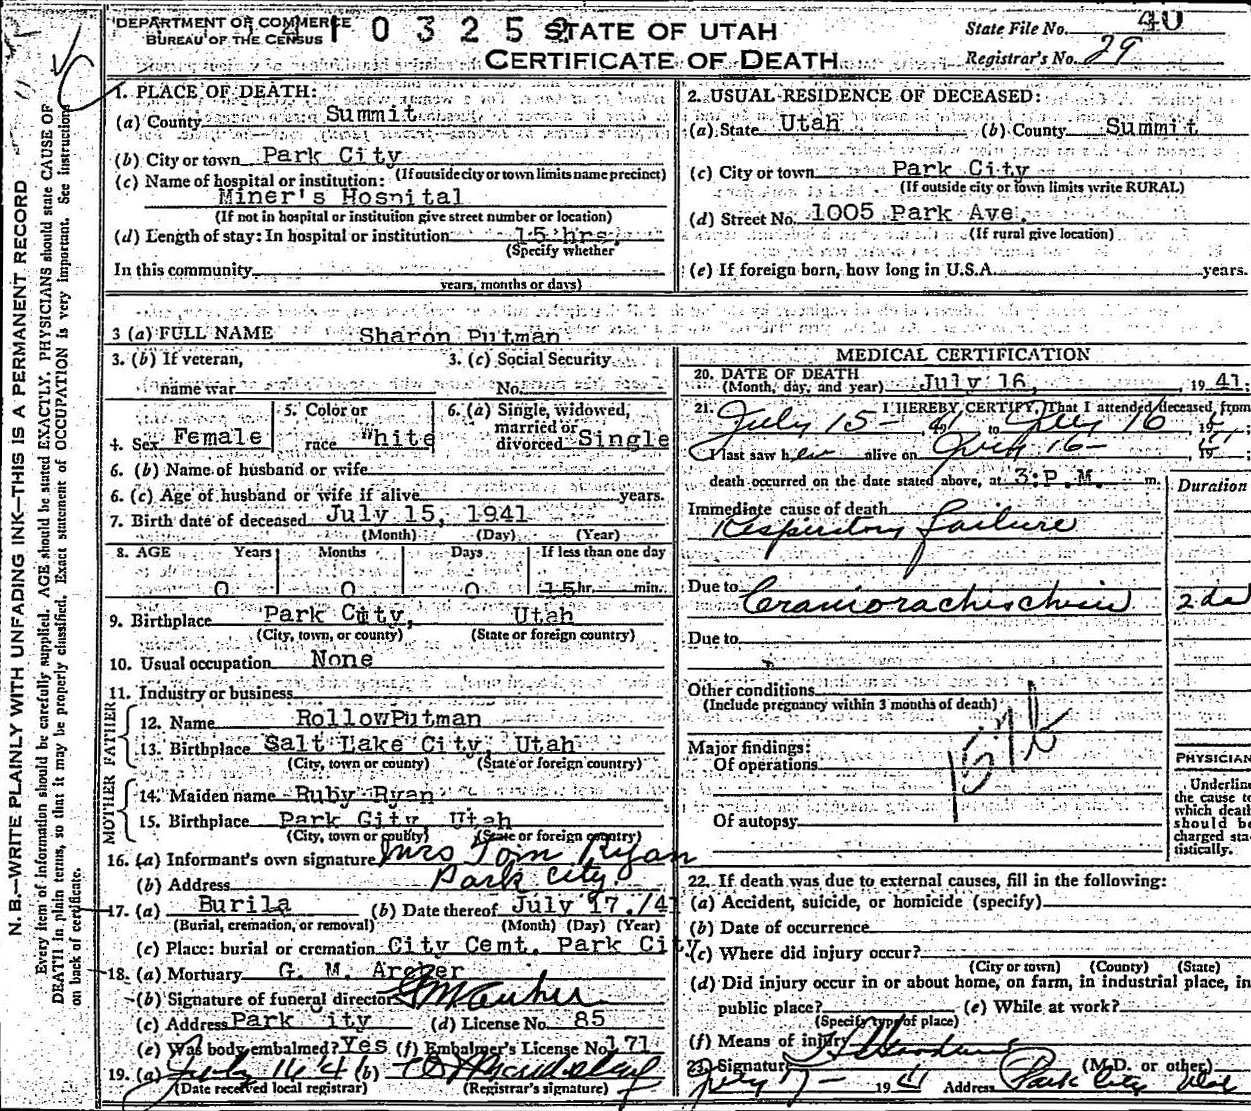 N. B.—WRITE PLAINLY WITH UNFADING INK—THIS IS A PERMANENT RECORD
Every item of information should be carefully supplied. AGE should be stated EXACTLY. PHYSICIANS should state CAUSE OF
DEATH in plain terms, so that it may be properly classified. Exact statement of OCCUPATION is very important. See instructions
on back of certificate.
DEPARTMENT OF COMMERCE
BUREAU OF THE CENSUS
0 3 2 5 2
STATE OF UTAH
CERTIFICATE OF DEATH
State File No. 40
Registrar's No. 29
1. PLACE OF DEATH:
(a) County Summit
(b) City or town Park City
(If outside city or town limits name precinct)
(c) Name of hospital or institution:
Miner's Hospital
(If not in hospital or institution give street number or location)
(d) Length of stay: In hospital or institution 15 hrs.
(Specify whether
In this community
years, months or days)
2. USUAL RESIDENCE OF DECEASED:
(a) State Utah (b) County Summit
(c) City or town Park City
(If outside city or town limits write RURAL)
(d) Street No. 1005 Park Ave.
(If rural give location)
(e) If foreign born, how long in U.S.A. years.
3 (a) FULL NAME Sharon Putman
3. (b) If veteran, 3. (c) Social Security
name war No.
4. Sex Female 5. Color or race White 6. (a) Single, widowed, married or divorced Single
6. (b) Name of husband or wife
6. (c) Age of husband or wife if alive years.
7. Birth date of deceased July 15, 1941
(Month) (Day) (Year)
8. AGE Years Months Days If less than one day
0 0 0 15 hr. min.
9. Birthplace Park City, Utah
(City, town, or county) (State or foreign country)
10. Usual occupation None
11. Industry or business
FATHER
12. Name RollowPutman
13. Birthplace Salt Lake City, Utah
(City, town or county) (State or foreign country)
MOTHER
14. Maiden name Ruby Ryan
15. Birthplace Park City Utah
(City, town or county) (State or foreign country)
16. (a) Informant's own signature Mrs Tom Ryan
(b) Address Park City
17. (a) Burila (b) Date thereof July 17./41
(Burial, cremation, or removal) (Month) (Day) (Year)
(c) Place: burial or cremation City Cemt. Park City.
18. (a) Mortuary G. M. Archer
(b) Signature of funeral director G M Archer
(c) Address Park City (d) License No. 85
(e) Was body embalmed? Yes (f) Embalmer's License No. 171
19. (a) July 16 41 (b)
(Date received local registrar) (Registrar's signature)
MEDICAL CERTIFICATION
20. DATE OF DEATH
(Month, day, and year) July 16, 1941;
21. I HEREBY CERTIFY, That I attended deceased from
July 15 - 1941 to July 16 1941;
I last saw her alive on July 16 - 19
death occurred on the date stated above, at 3:P.M. m.
Duration
Immediate cause of death
Respiratory failure
Due to Craniorachischisis 2 da
Due to
Other conditions
(Include pregnancy within 3 months of death)
157b
Major findings:
Of operations
Of autopsy
PHYSICIAN
Underline
the cause to
which death
should be
charged sta-
tistically.
22. If death was due to external causes, fill in the following:
(a) Accident, suicide, or homicide (specify)
(b) Date of occurrence
(c) Where did injury occur?
(City or town) (County) (State)
(d) Did injury occur in or about home, on farm, in industrial place, in
public place? (e) While at work?
(Specify type of place)
(f) Means of injury
23. Signature (M.D. or other)
July 17 - 1941 Address Park City Utah